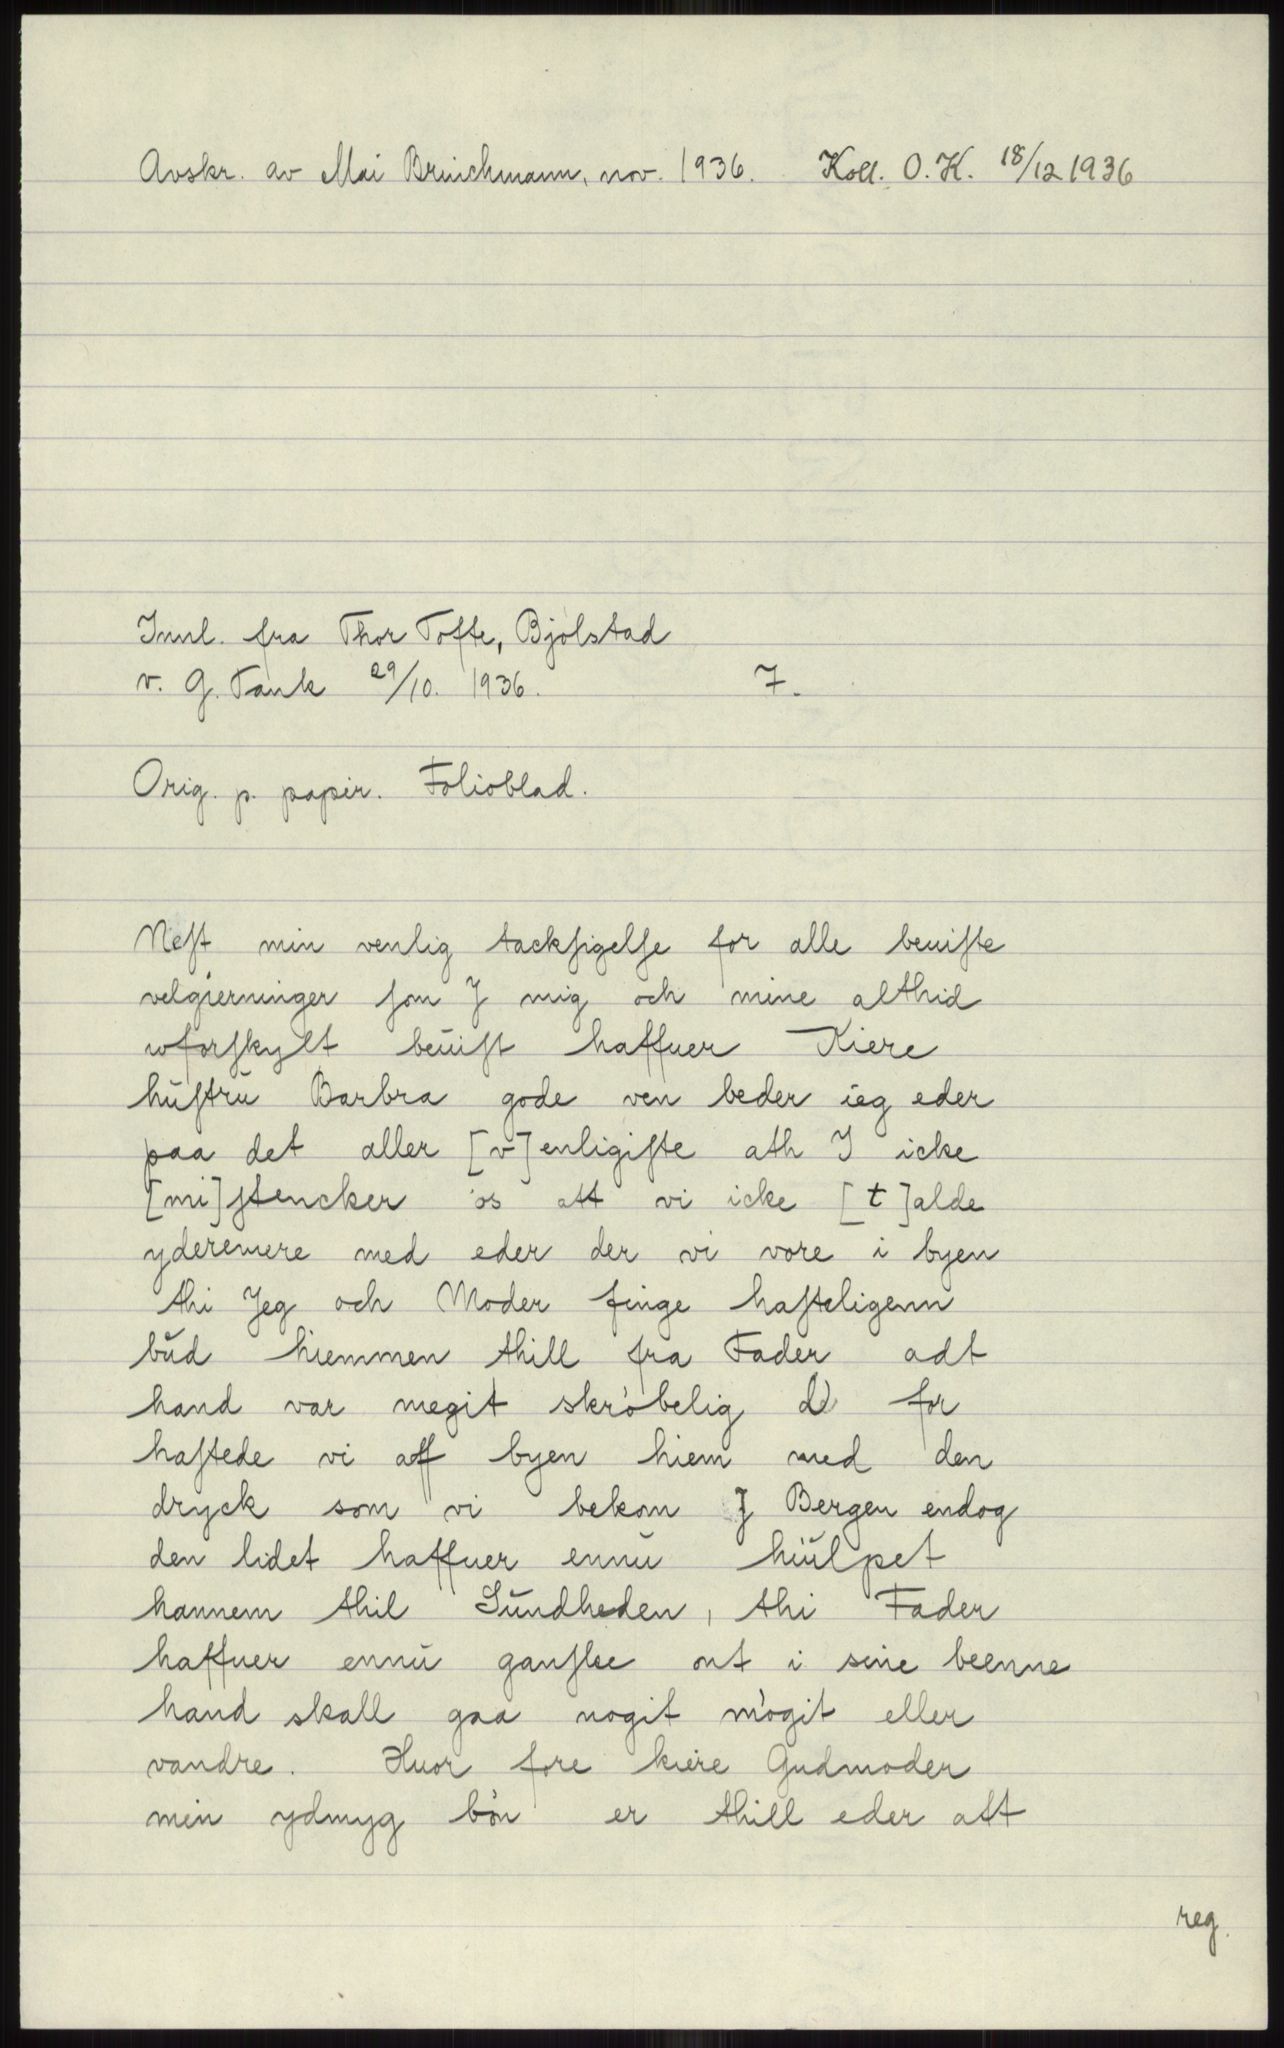 Avskr. av Mai Brinchmann, nov. 1936. Koll. O. K. 18/12 1936
Innl. fra Thor Tofte, Bjølstad
v. G. Tank 29/10. 1936. 7.
Orig. p. papir. Folioblad.
Neſt min venlig tackſigelſe for alle beuiſte
velgierninger ſom J mig och mine althid
wforſkylt beuiſt haffuer Kiere
huſtrŭ Barbra gode ven beder ieg eder
paa det aller [v]enligiſte ath J icke
[mi]ſtencker os att vi icke [t]alde
yderemere med eder der vi vore i byen
thi Jeg och Moder finge haſteligenn
bŭd hiemmen thill fra Fader adt
hand var megit skrøbelig for
haſtede vi aff byen hiem med den
dryck som vi bekom J Bergen endog
den lidet haffuer ennŭ hiŭlpet
hannem thil Sŭndheden, thi Fader
haffuer ennŭ ganſke ont i sine beenne
hand skall gaa nogit møgit eller
vandre. Huor fore kiere Gudmoder
min ydmyg bøn er thill eder att
reg.